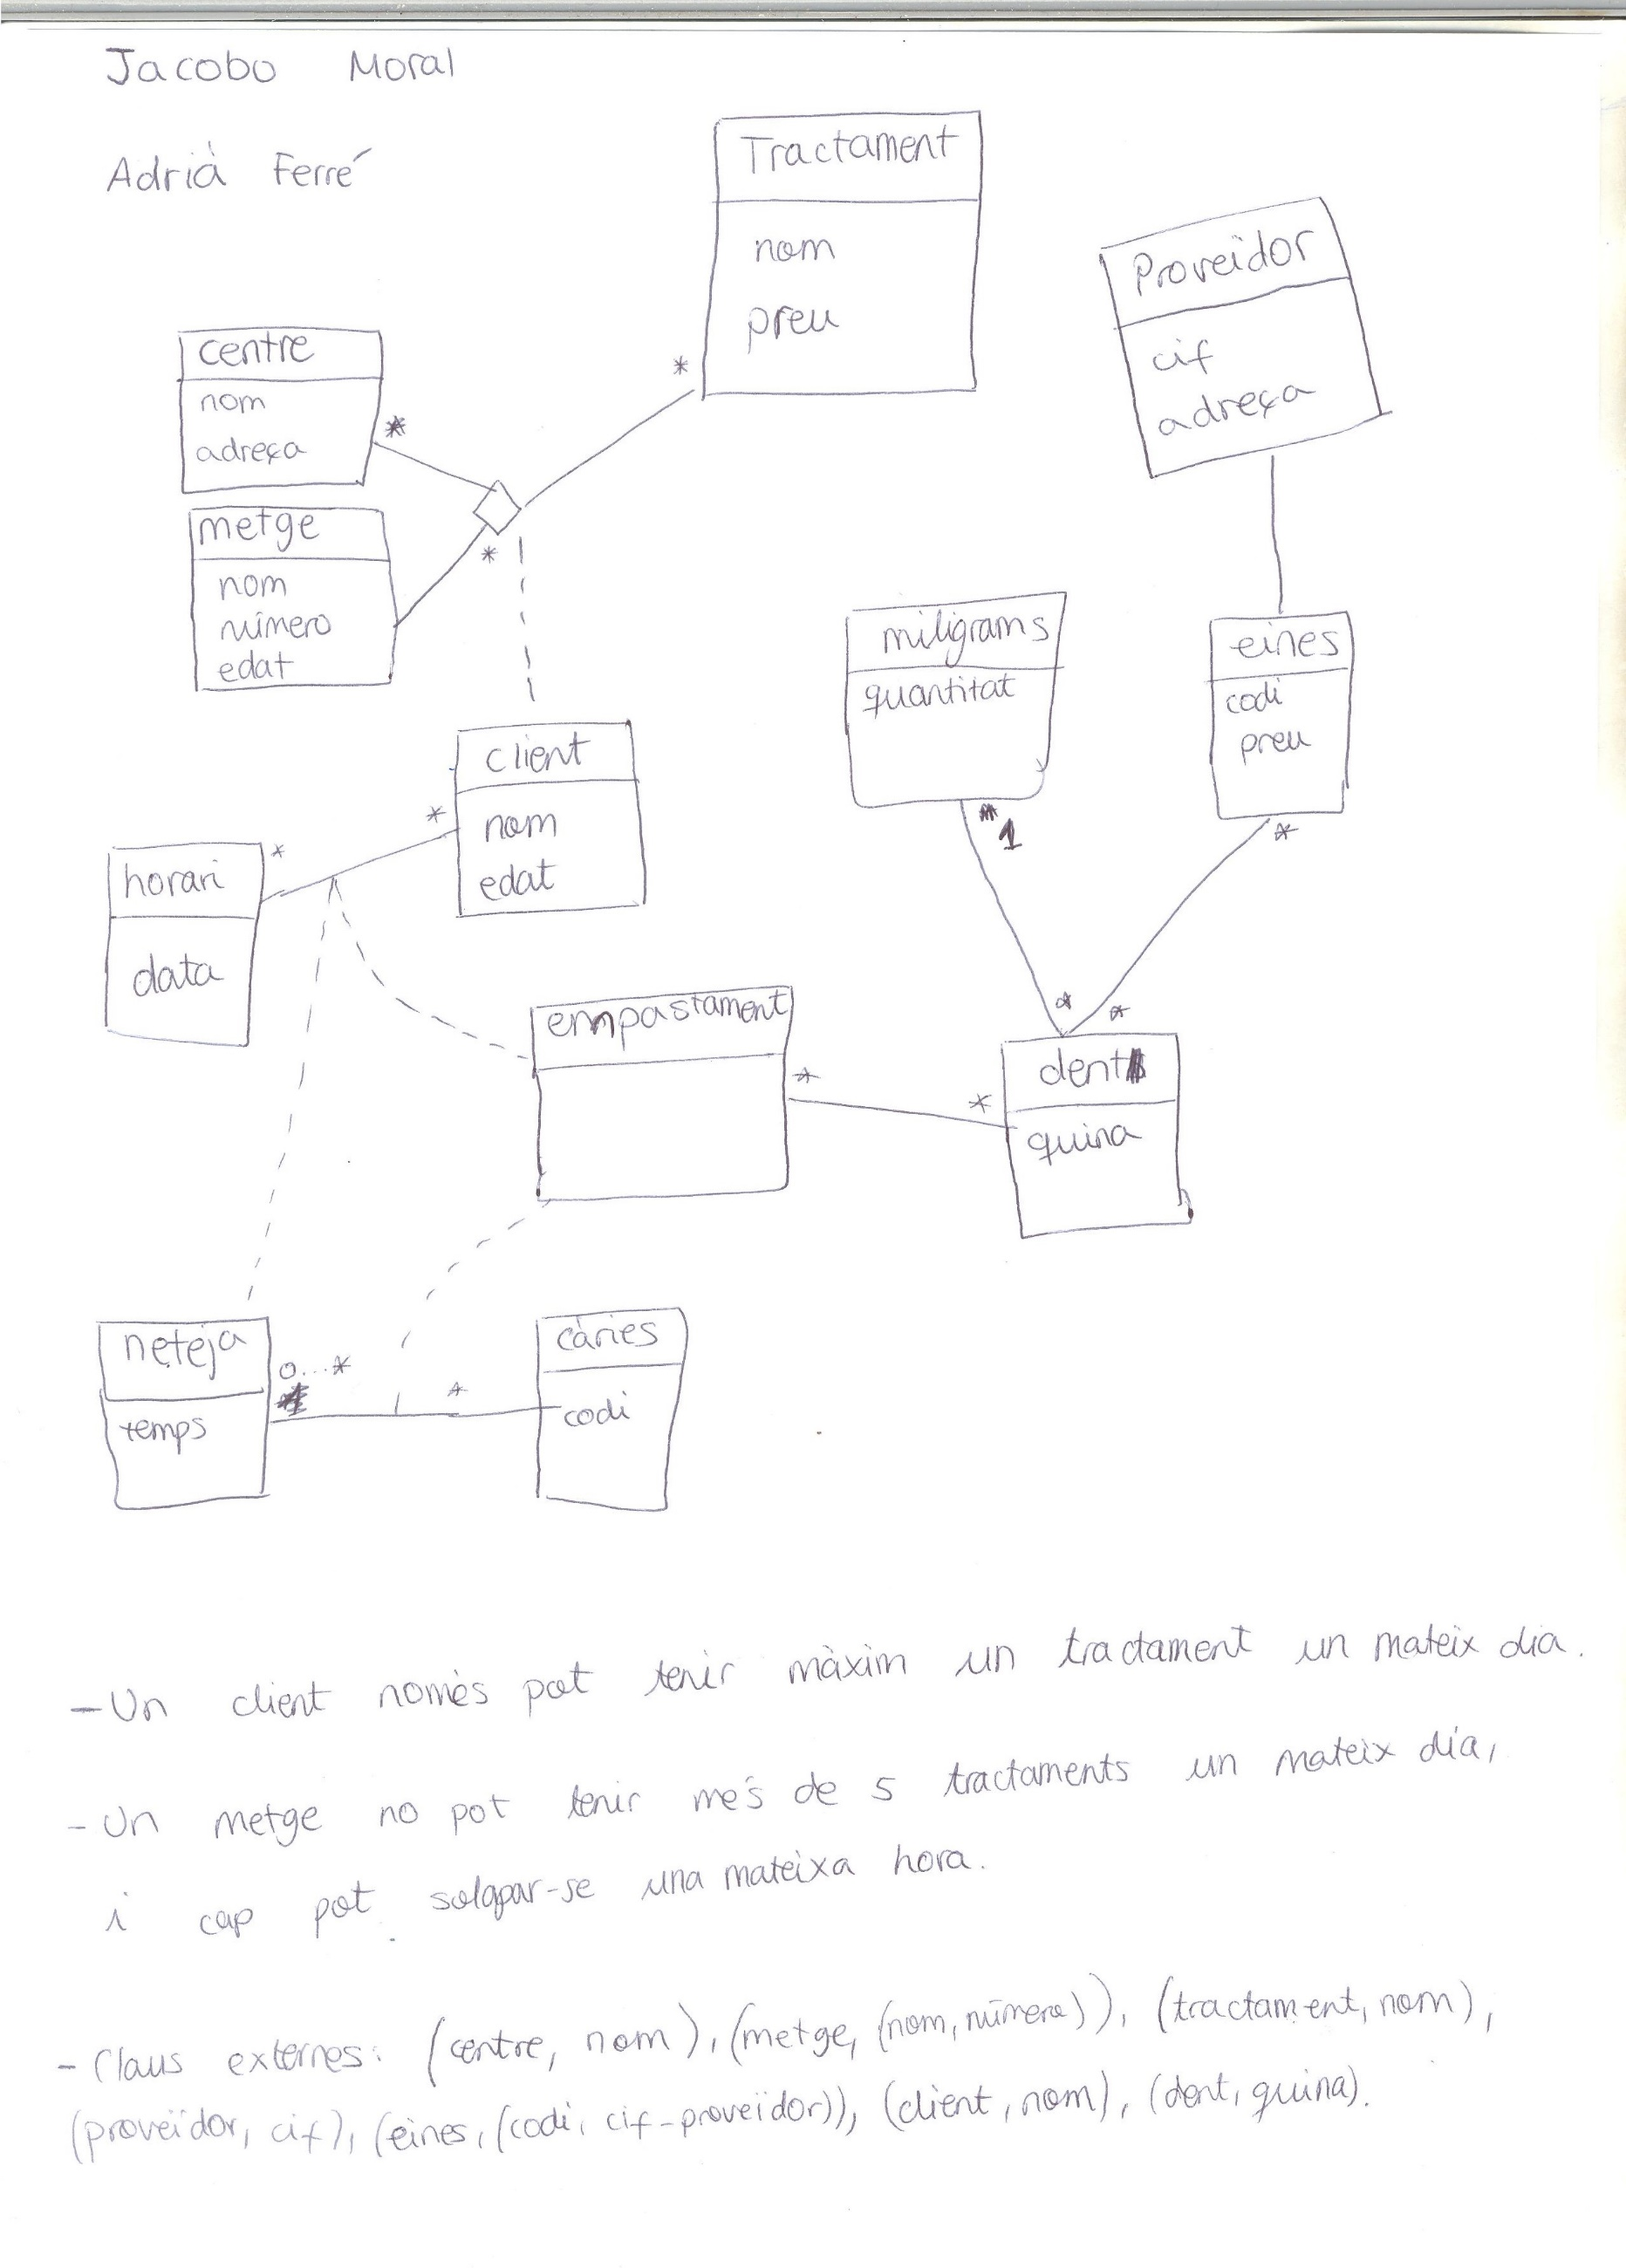 Jacobo Moral
Adrià Ferré
Tractament
nom
preu
Proveïdor
cif
adreça
centre
nom
adreça
*
*
metge
nom
número
edat
*
miligrams
quantitat
1
eines
codi
preu
*
client
nom
edat
*
horari
data
*
empastament
*
*
*
*
dent
quina
neteja
temps
0...*
*
càries
codi
- Un client només pot tenir màxim un tractament un mateix dia.
- Un metge no pot tenir més de 5 tractaments un mateix dia,
i cap pot solapar-se una mateixa hora.
- Claus externes: (centre, nom), (metge, (nom, número)), (tractament, nom),
(proveïdor, cif), (eines, (codi, cif-proveïdor)), (client, nom), (dent, quina).